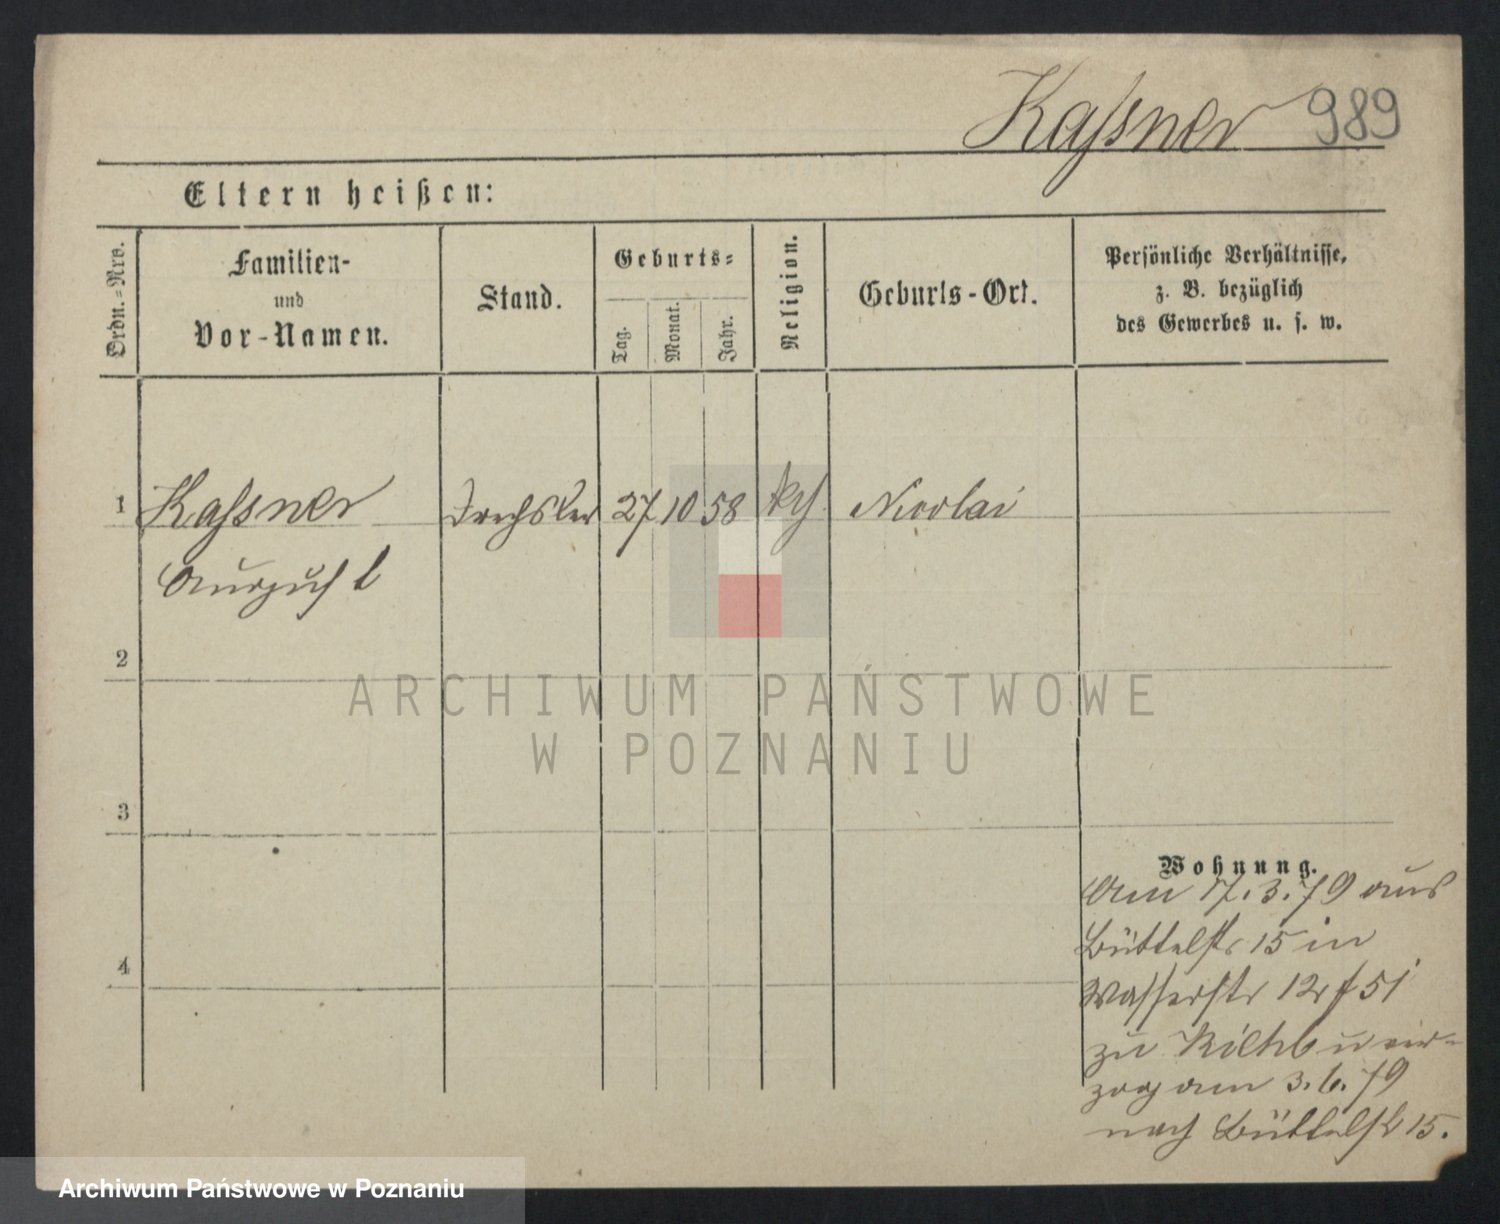 Kaſsner 989
Eltern heißen:
Ordn.-Nro.
Familien-
und
Vor-Namen.
Stand.
Geburts-
Tag.
Monat.
Jahr.
Religion.
Geburts-Ort.
Persönliche Verhältnisse,
z. B. bezüglich
des Gewerbes u. s. w.
1 Kaſsner Drechsler 27 10 58 kth Nicolai
August
2
ARCHIWUM PAŃSTWOWE
W POZNANIU
3
Wohnung.
Am 17.3.79 aus
Büttelstr 15 in
4
Wasserstr 12 51
zu u ver-
zog am 3.6.79
nach Büttelst 15.
Archiwum Państwowe w Poznaniu